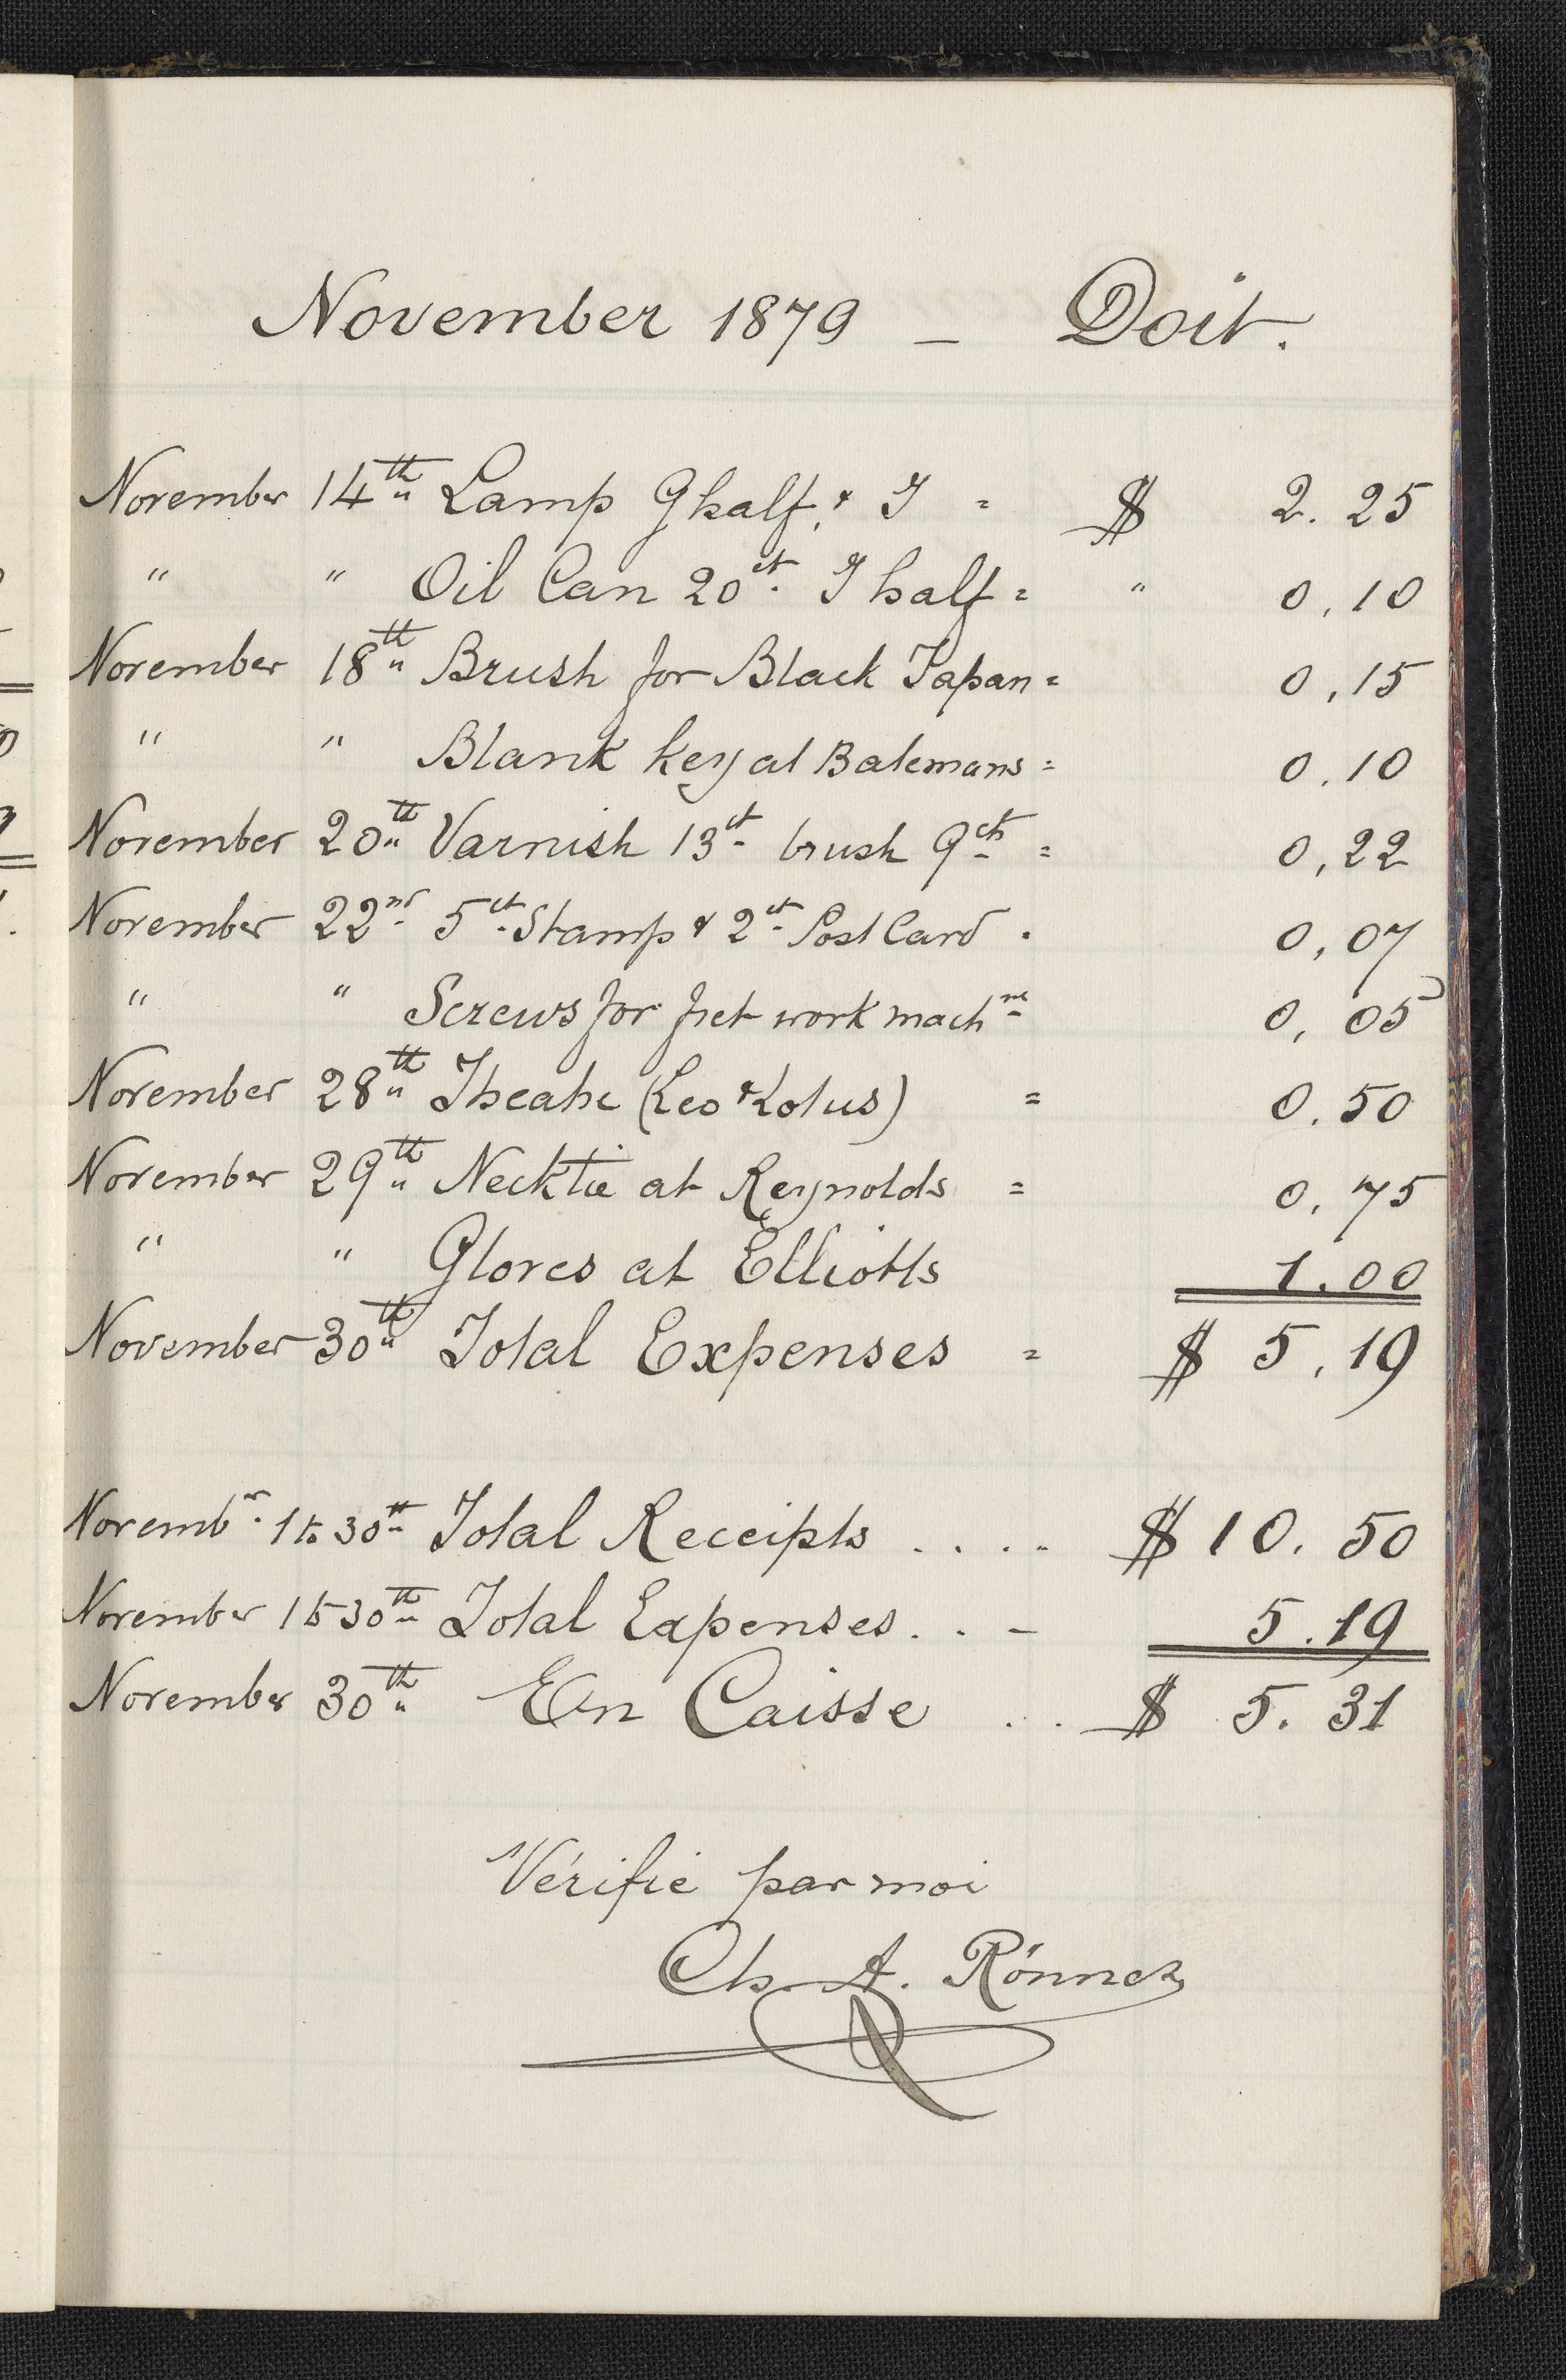 November 1879 — Doit.
November 14th Lamp G half, & I = $ 2. 25
" " Oil Can 20ct. I half = " 0, 10
November 18th Brush for Black Japan = 0, 15
" " Blank key at Batemans = 0. 10
November 20th Varnish 13ct brush 9cts = 0, 22
November 22nd 5ct Stamp & 2ct Post Card . 0, 07
" " Screws for fret work machne 0, 05
November 28th Theatre (Leo & Lotus) = 0. 50
November 29th Necktie at Reynolds = 0, 75
" " Gloves at Elliotts 1.00
November 30th Total Expenses = $ 5, 19
Novembr. 1 to 30th Total Receipts .... $ 10. 50
November 1 to 30th Total Expenses. . - 5.19
November 30th En Caisse . . $ 5. 31
Vérifié par moi
Ch. A. Rönnez